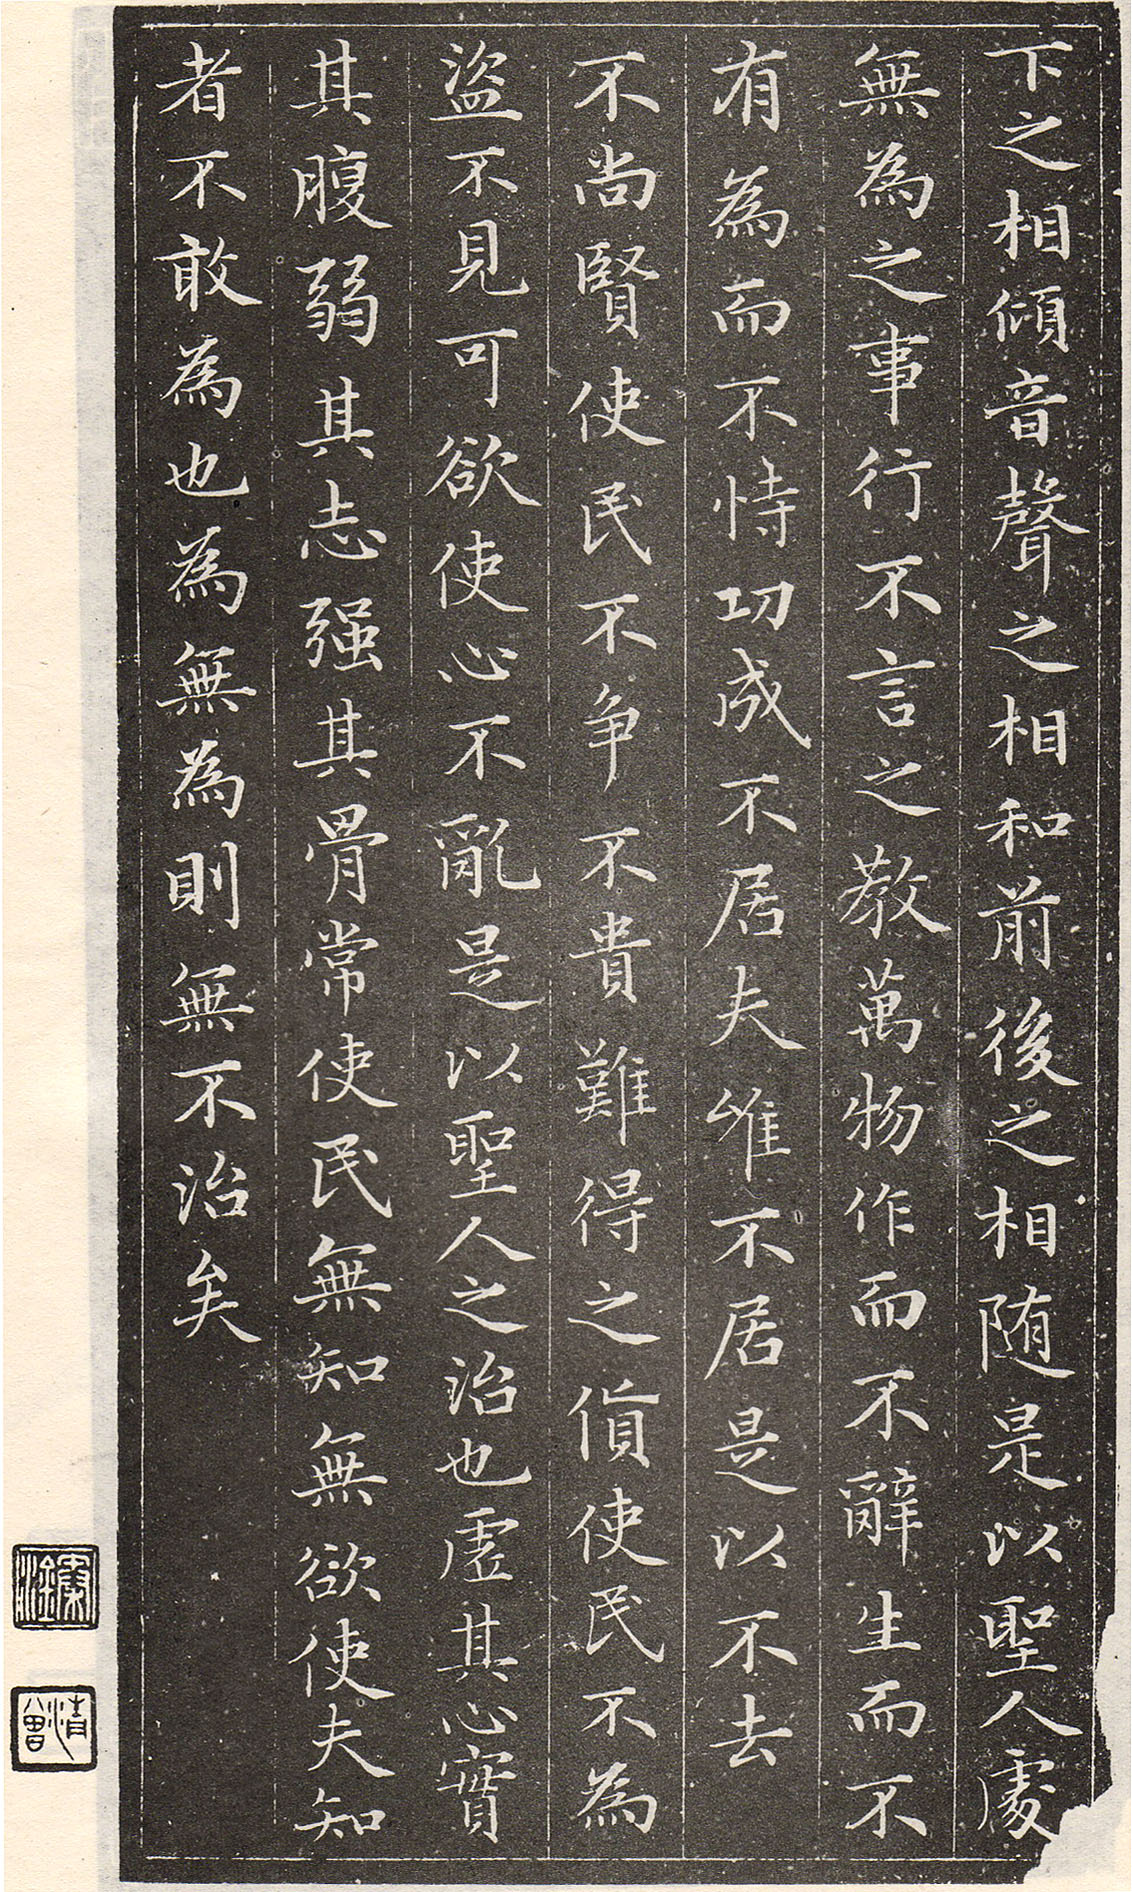 下之相傾音聲之相和前後之相随是以聖人處
無為之事行不言之教萬物作而不辭生而不
有為而不恃功成不居夫唯不居是以不去
不尚賢使民不争不貴難得之貨使民不為
盜不見可欲使心不亂是以聖人之治也虛其心實
其腹弱其志强其骨常使民無知無欲使夫知
者不敢為也為無為則無不治矣